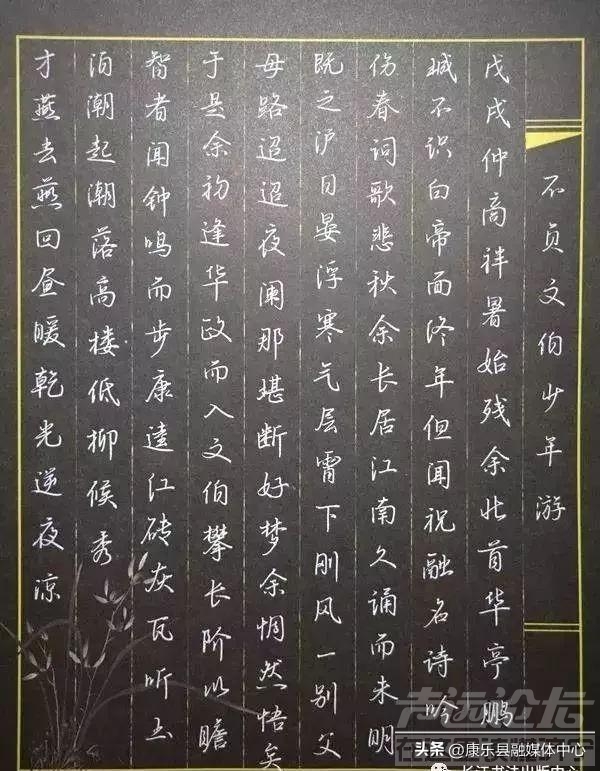 不负文伯少年游
戊戌仲商祥暑始残余北首华亭鹏
城不识白帝面终年但闻祝融名诗吟
伤春词歌悲秋余长居江南久诵而未明
既之沪日晏浮寒气层霄下刚风一别父
母路迢迢夜阑那堪断好梦余惘然悟矣
于是余初逢华政而入文伯攀长阶以瞻
智者闻钟鸣而步康逵江砖灰瓦听土
泊潮起潮落高楼低柳候秀
才燕去燕回昼暖乾光逆夜凉
头条 @康乐县融媒体中心